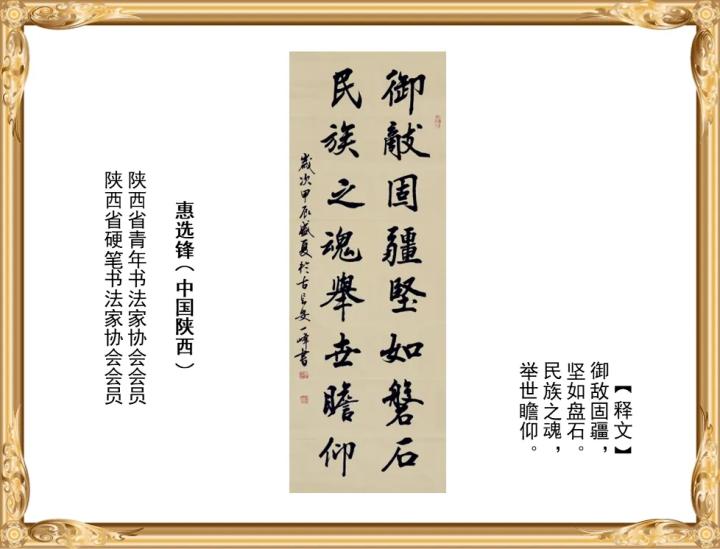 御敵固疆堅如磐石
民族之魂舉世瞻仰
歲次甲辰盛夏於古長安一峰書
【释文】
御敌固疆，
坚如盘石。
民族之魂，
举世瞻仰。
惠选锋（中国陕西）
陕西省青年书法家协会会员
陕西省硬笔书法家协会会员